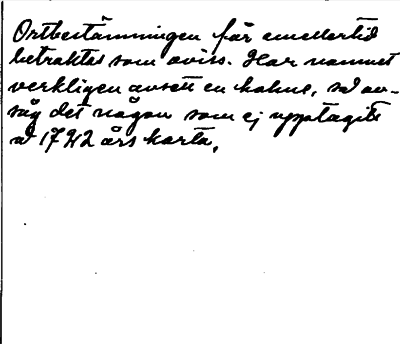 Ortbestämningen får emellertid
betraktas som oviss. Har namnet
verkligen avsett en holme, så av-
såg det någon som ej upptagits
å 1742 års karta.